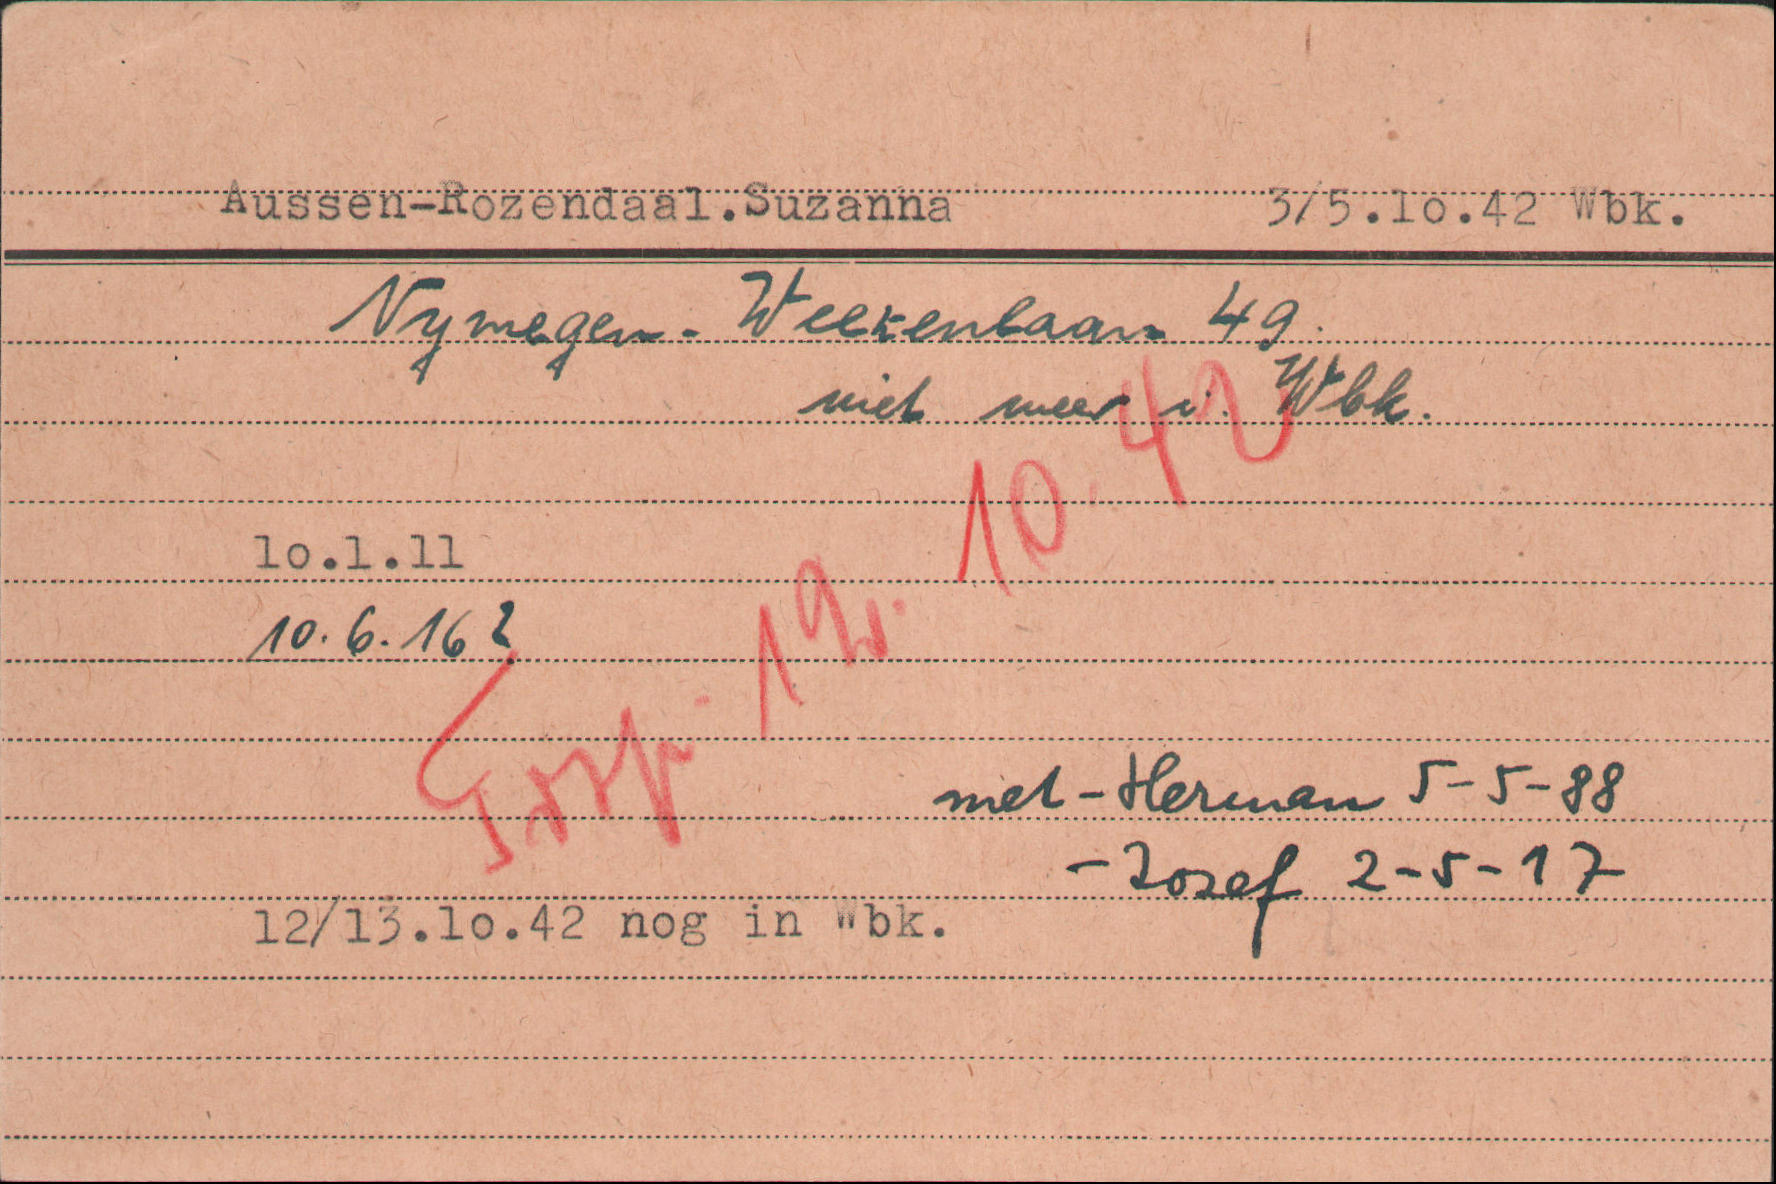 Aussen-Rozendaal.Suzanna 3/5.10.42 Wbk.
Nymegen - Weezenlaan 49.
niet meer i. Wbk.
10.1.11
10.6.16 ?
12. 10. 42
met - Herman 5-5-88
- Jozef 2-5-17
12/13.10.42 nog in Wbk.